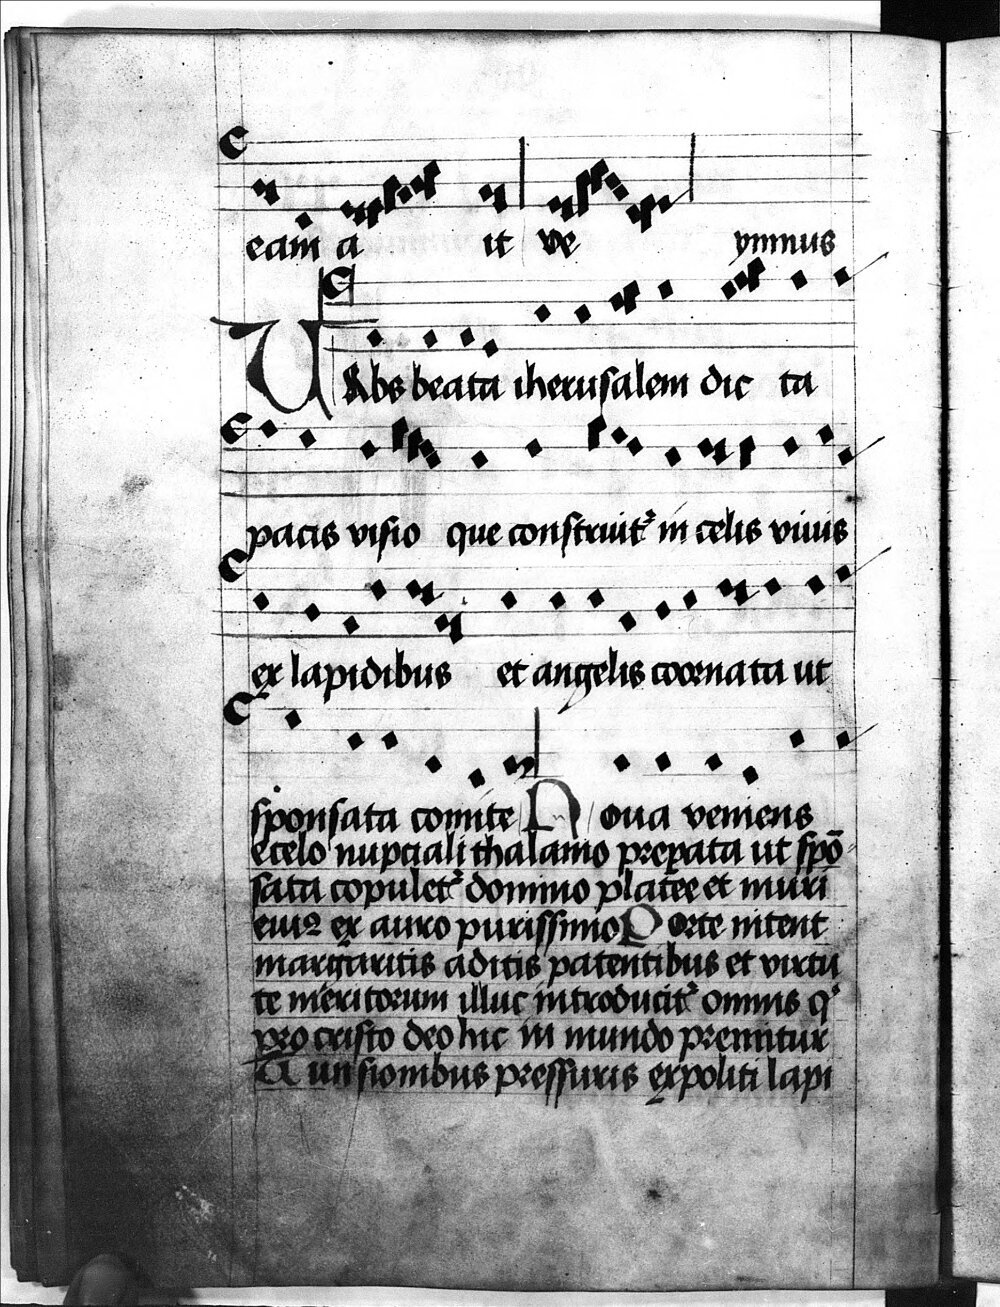 eam a it ve ymnus
Urbs beata iherusalem dic ta
pacis visio que construit᷑ in celis vivis
ex lapidibus et angelis coornata ut
sponsata comite Noua veniens
ecelo nupciali thalamo prepata ut spō
sata copulet᷑ domino platee et muri
eius ex auro purissimo Porte nitent
margaritis aditis patentibus et virtu
te meritorum illuc introducit᷑ omnis q
pro cristo deo hic in mundo premitur
Tunsionibus pressuris expoliti lapi